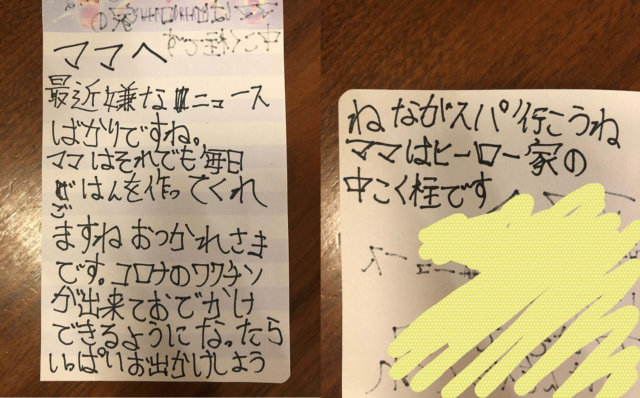 ママへ
最近嫌なニュース
ばかりですね。
ママはそれでも、毎日
ごはんを作ってくれ
ますねおつかれさま
です。コロナのワクチン
が出来ておでかけ
できるようになったら
いっぱいお出かけしよう
ねながスパ行こうね
ママはヒーロー家の
中こく柱です